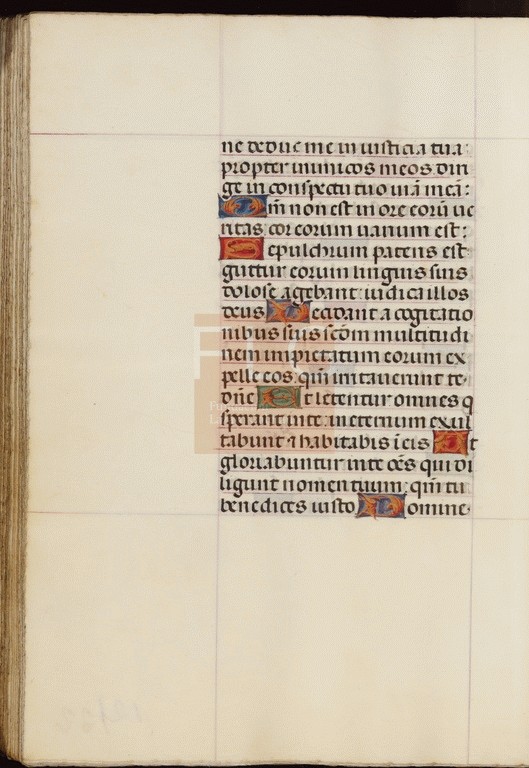 ne deduc me in iusticia tua:
propter inimicos meos diri
ge in conspectu tuo uiā meā:
Qm̄ non est in ore eorū ue
ritas cor eorum uanum est:
Sepulchrum patens est
guttur eorum linguis suis
dolose agebant: iudica illos
deus Decidant a cogitatio
nibus suis scd̄m multitudi
nem impietatum eorum ex
pelle eos: qm̄ irritauerunt te
dn̄e Et letentur omnes q
sperant inte: ineternum exul
tabunt ⁊ habitabis ī eis Et
gloriabuntur inte oēs qui di
ligunt nomen tuum: qm̄ tu
benedices iusto Domine